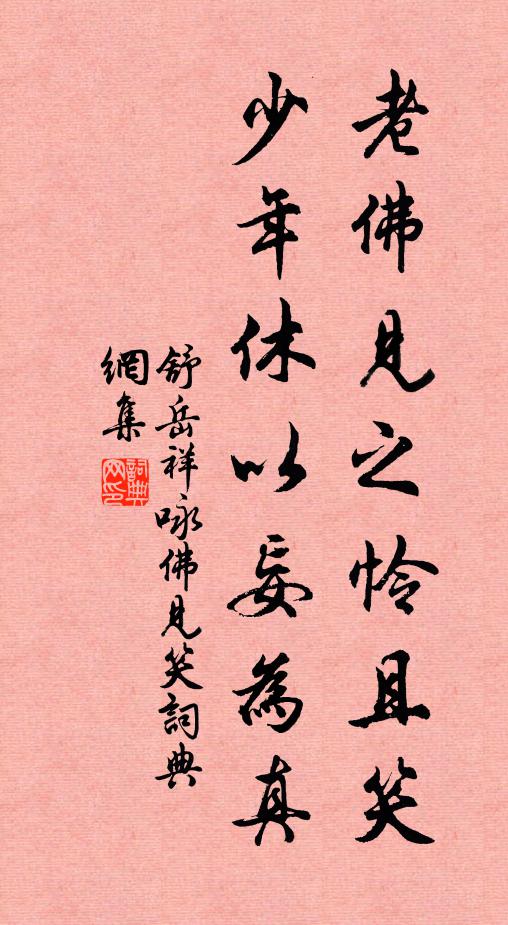 老佛見之怜且笑
少年休以妄為真
舒岳祥咏佛見笑詞典
網集
詞典網印